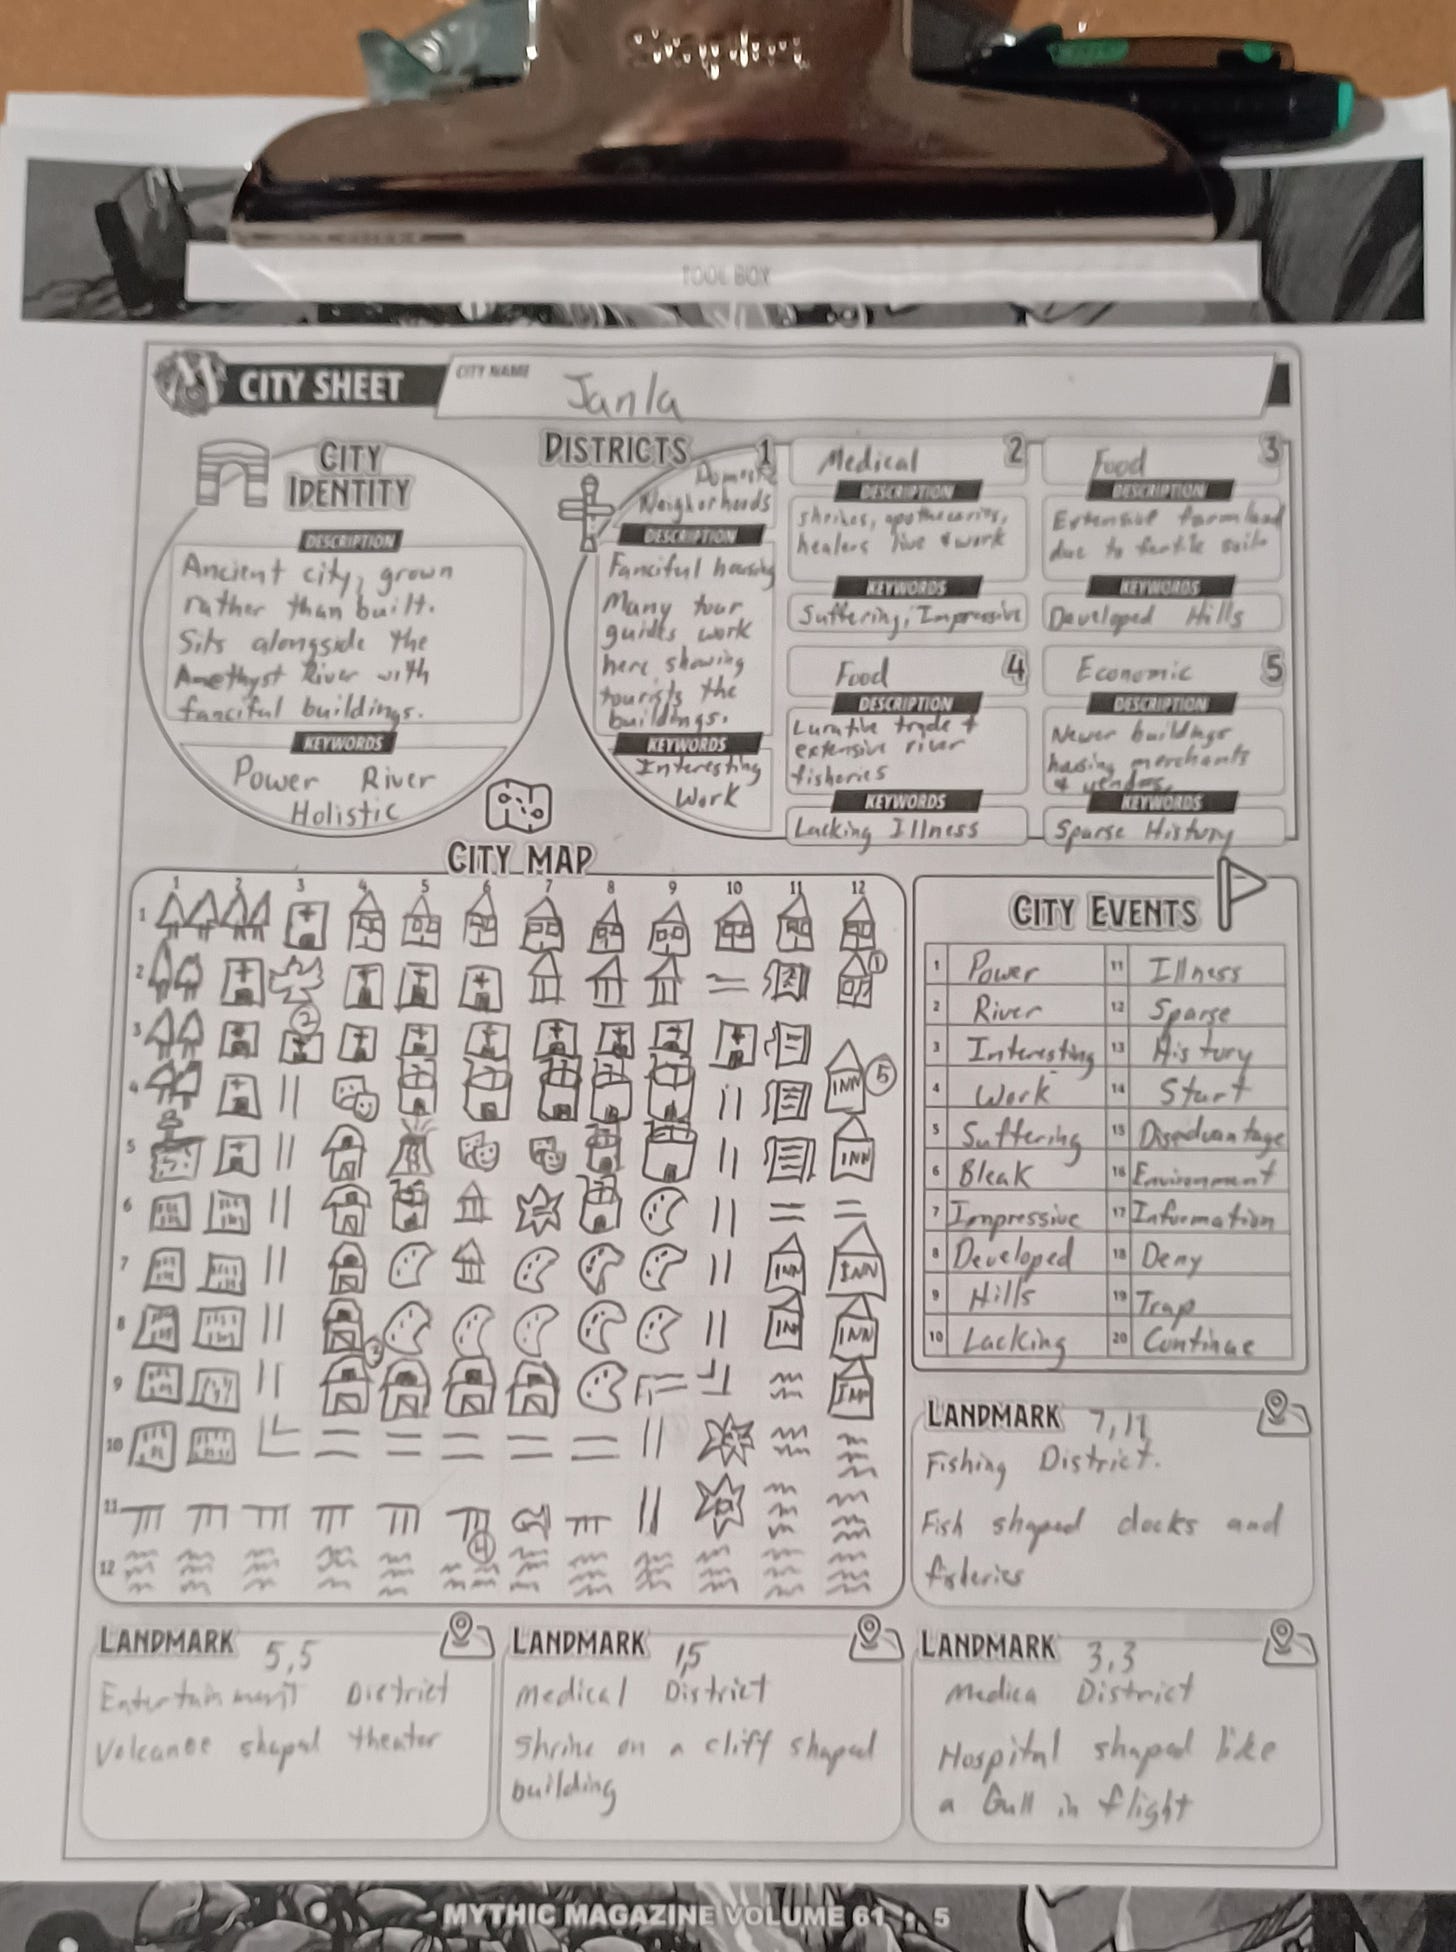 TOOL BOX
CITY SHEET
CITY NAME
Janla
CITY
IDENTITY
DESCRIPTION
Ancient city, grown
rather than built.
Sits alongside the
Amethyst River with
fanciful buildings.
KEYWORDS
Power River
Holistic
DISTRICTS
1
Domestic
Neighorhoods
DESCRIPTION
Fanciful housing
Many tour
guides work
here showing
tourists the
buildings.
KEYWORDS
Interesting
Work
Medical 2
DESCRIPTION
shrines, apothecaries,
healers live & work
KEYWORDS
Suffering, Impressive
Food 3
DESCRIPTION
Extensive farmland
due to fertile soil
KEYWORDS
Developed Hills
Food 4
DESCRIPTION
trade &
extensive river
fisheries
KEYWORDS
Lacking Illness
Economic 5
DESCRIPTION
Newer buildings
merchants
& vendors.
KEYWORDS
Sparse History
CITY MAP
1 2 3 4 5 6 7 8 9 10 11 12
1
2 1
3 2
4 INN 5
5 INN
6
7 INN INN
8 INN INN
3
9 INN
10
11
4
12
CITY EVENTS
1 Power 11 Illness
2 River 12 Sparse
3 Interesting 13 History
4 Work 14 Start
5 Suffering 15 Disadvantage
6 Bleak 16 Environment
7 Impressive 17 Information
8 Developed 18 Deny
9 Hills 19 Trap
10 Lacking 20 Continue
LANDMARK 7,11
Fishing District.
Fish shaped docks and
fisheries
LANDMARK 5,5
Entertainment District
Volcanoe shaped theater
LANDMARK 1,5
Medical District
Shrine on a cliff shaped
building
LANDMARK 3,3
Medica District
Hospital shaped like
a Gull in flight
MYTHIC MAGAZINE VOLUME 61 5